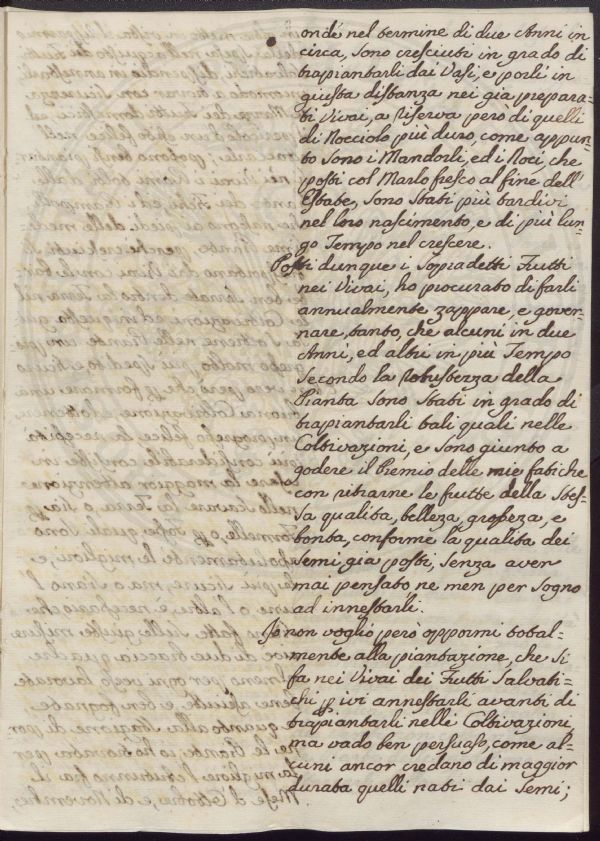 onde nel termine di due Anni in
circa, sono cresciuti in grado di
trapiantarli dai Vasi, e porli in
giusta distanza nei gia prepara-
ti Vivai, a riserva pero di quelli
di Nocciolo più duro, come appun-
to sono i Mandorli, ed i Noci, che
posti col Marlo fresco al fine dell'
Estate, sono stati più tardivi
nel loro nascimento, e di più lun-
go Tempo nel crescere.
Posti dunque i sopradetti Frutti
nei Vivai, ho procurato di farli
annualmente zappare, e gover-
nare, tanto, che alcuni in due
Anni, ed altri in più Tempo
secondo la robustezza della
Pianta sono stati in grado di
trapiantarli tali quali nelle
Coltivazioni, e sono giunto a
godere il Premio delle mie fatiche
con ritrarne le frutte della stes-
sa qualita, belleza, grosseza, e
bonta, conforme la qualita dei
semi gia posti, senza aver
mai pensato ne men per sogno
ad innestarli.
Io non voglio però oppormi total-
mente alla piantazione, che si
fa nei Vivai dei Frutti salvati-
chi p ivi annestarli avanti di
trapiantarli nelli Coltivazioni
ma vado ben persuaso, come al-
cuni ancor credano di maggior
durata quelli nati dai semi;